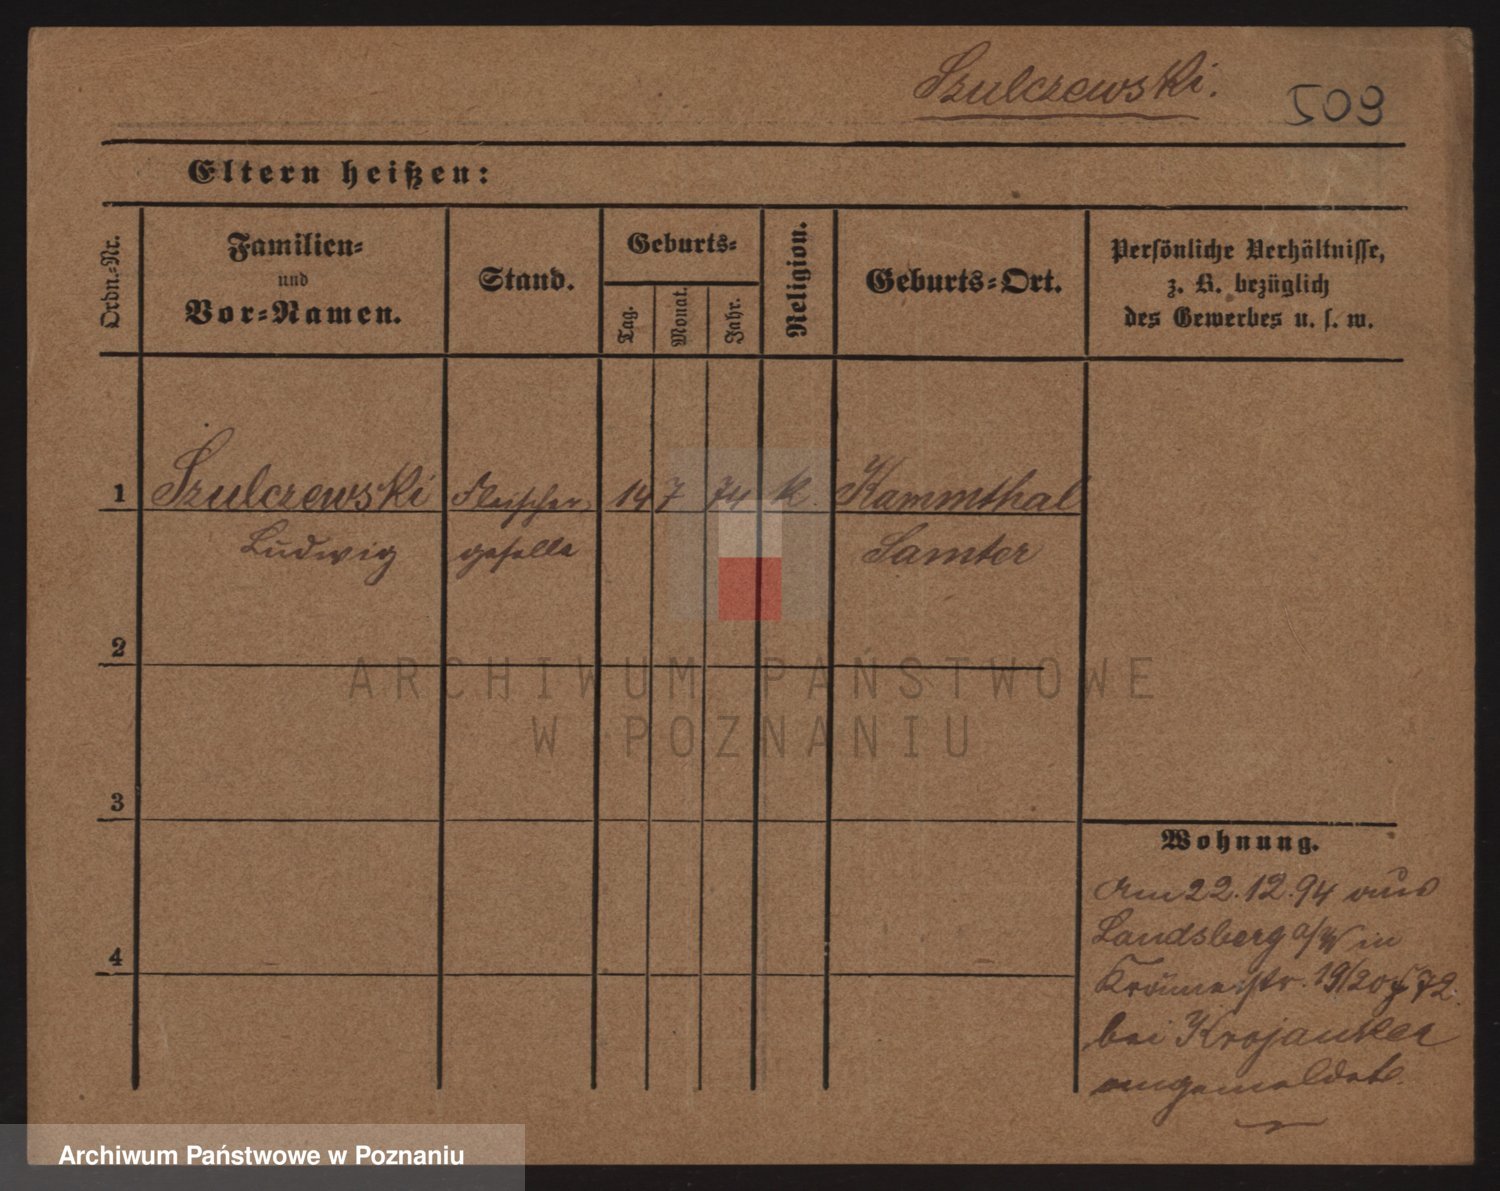 Szulczewski.
509
Eltern heißen:
Ordn.-Nr.
Familien-
und
Vor-Namen.
Stand.
Geburts-
Tag.
Monat.
Jahr.
Religion.
Geburts-Ort.
Persönliche Verhältnisse,
z. B. bezüglich
des Gewerbes u. s. w.
1 Szulczewski Fleischer 14 7 74 k. Kammthal
Ludwig geselle Samter
2
3
4
Wohnung.
Am 22.12.94 aus
Landsberg a/W in
19/20 72
bei Krojanker
angemeldet.
ARCHIWUM PAŃSTWOWE
W POZNANIU
Archiwum Państwowe w Poznaniu